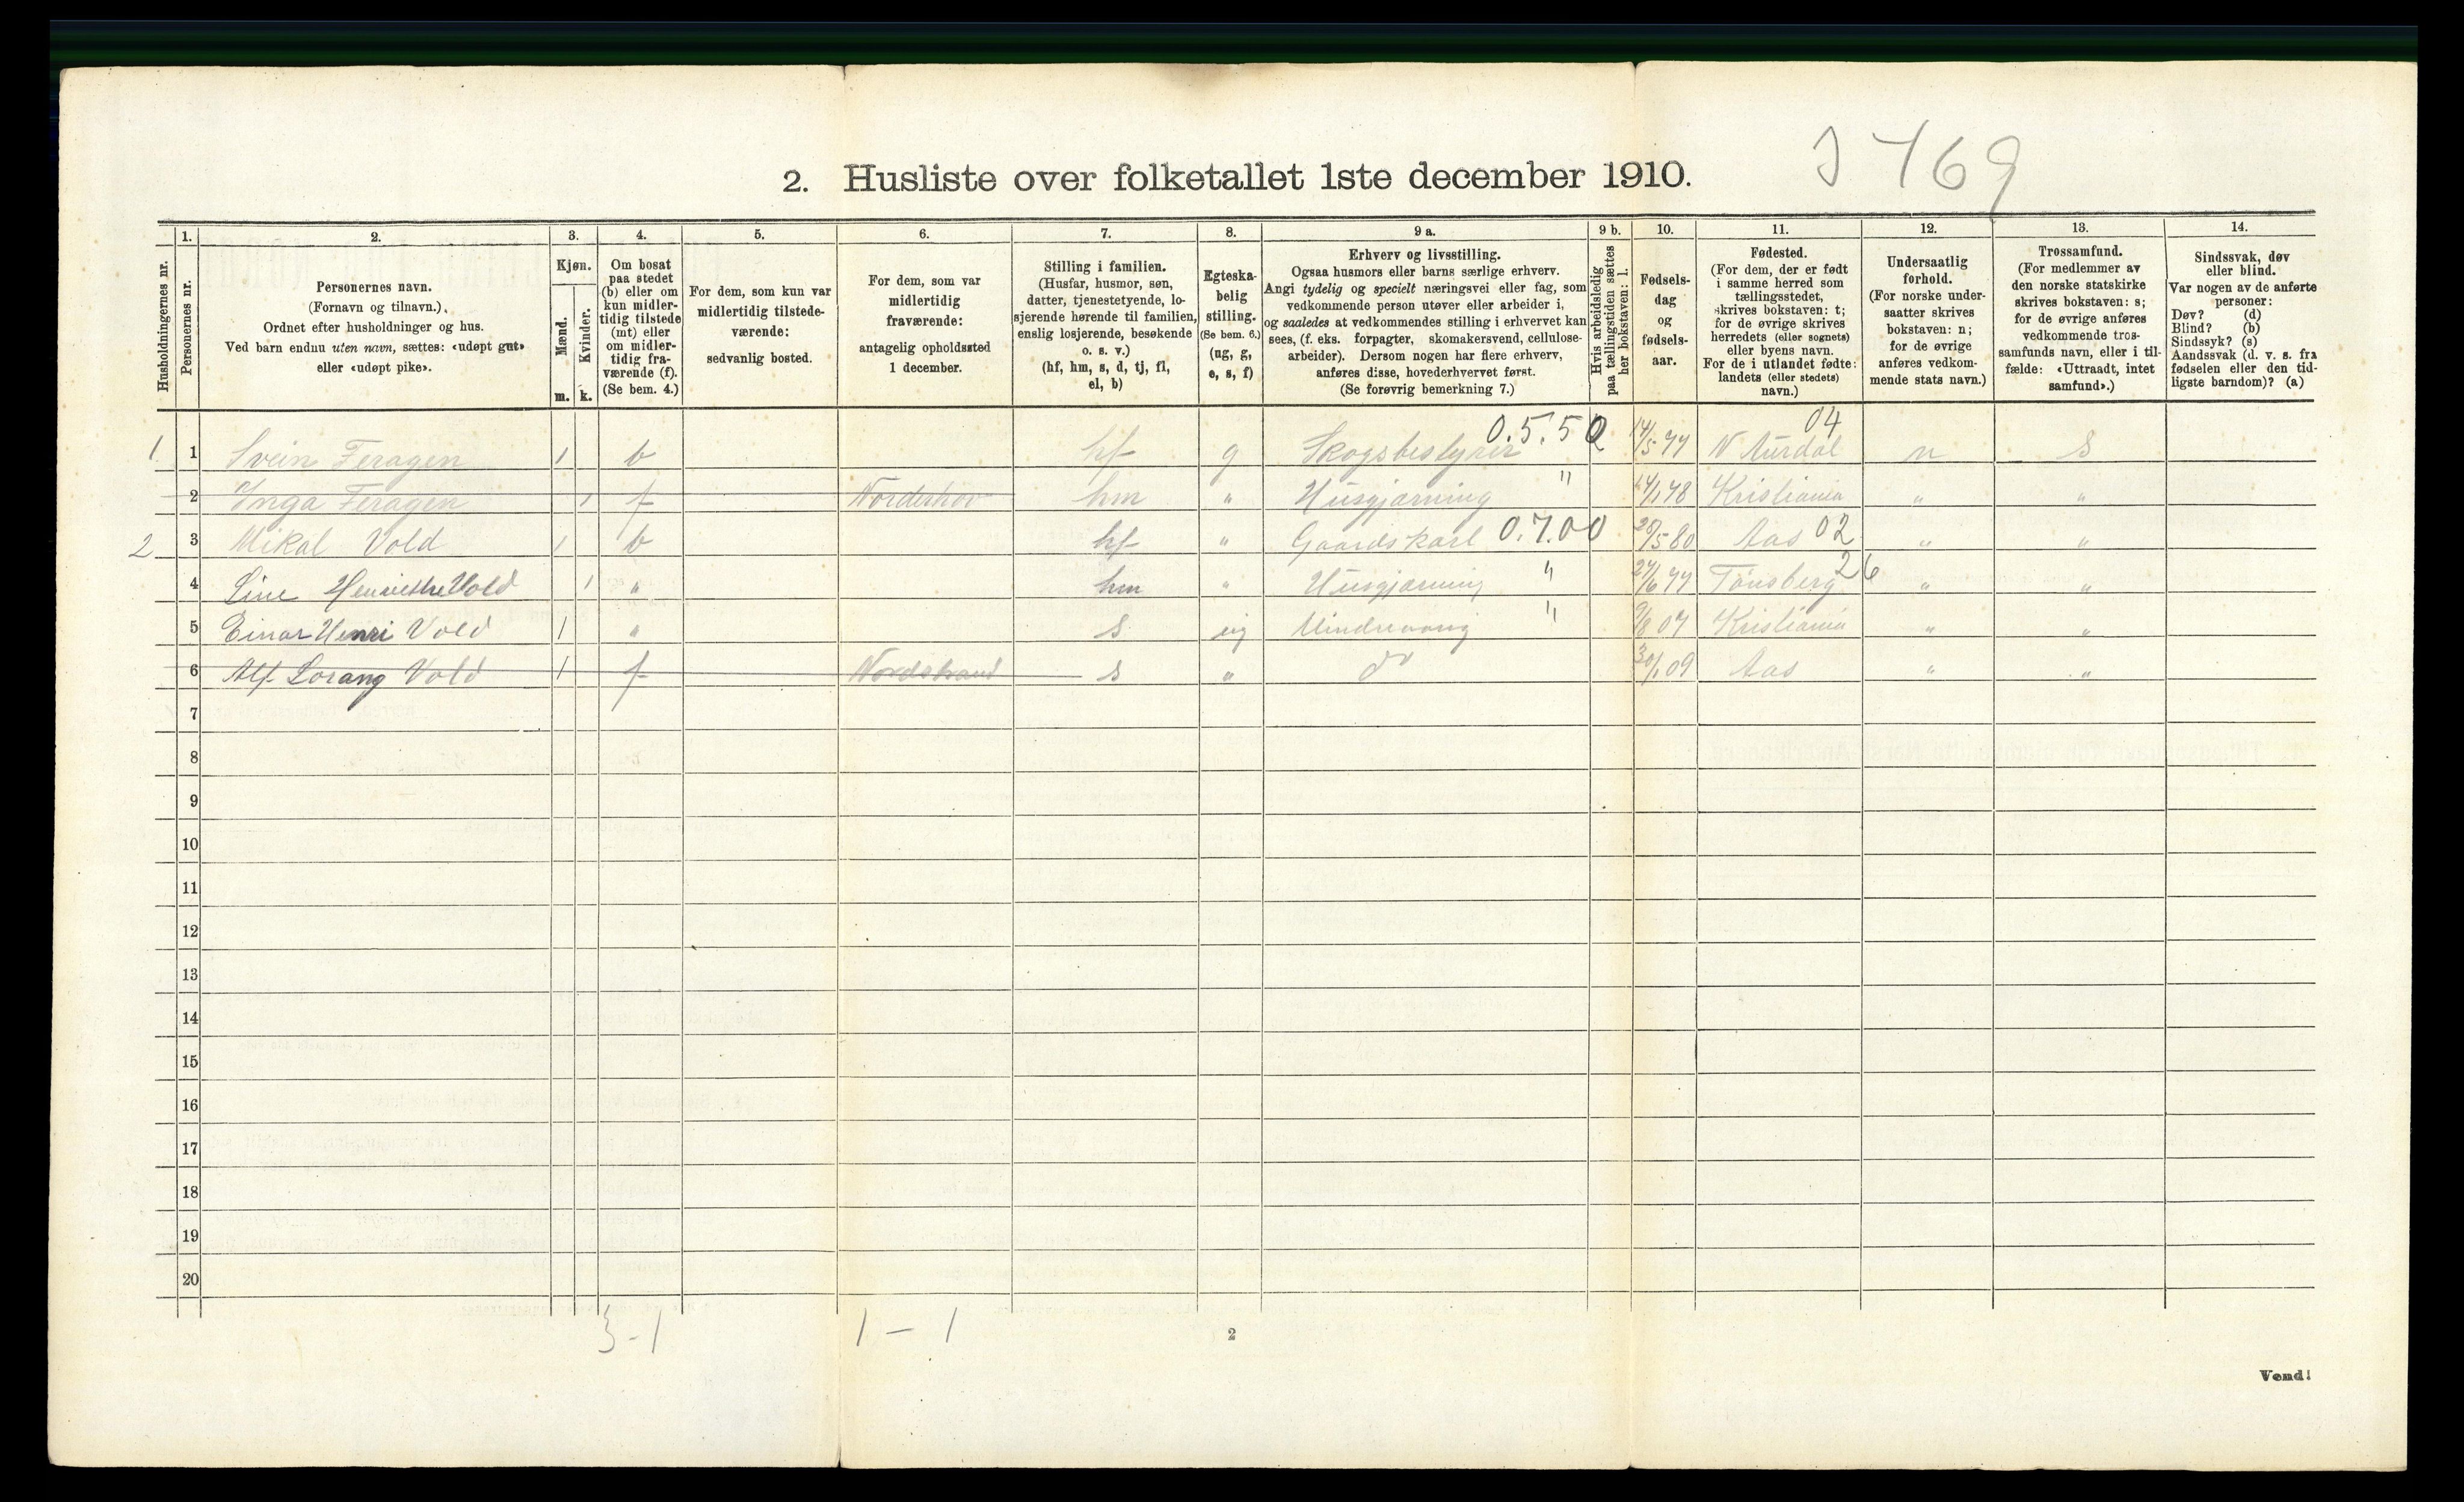 2. Husliste over folketallet 1ste december 1910.
1. 2. 3. 4. 5. 6. 7. 8. 9 a. 9 b. 10. 11. 12. 13. 14.
Husholdningernes nr.
Personernes nr.
Personernes navn.
(Fornavn og tilnavn.)
Ordnet efter husholdninger og hus.
Ved barn endnu uten navn, sættes: «udøpt gut»
eller «udøpt pike».
Kjøn.
Mænd.
Kvinder.
m. k.
Om bosat
paa stedet
(b) eller om
kun midler-
tidig tilstede
(mt) eller
om midler-
tidig fra-
værende (f).
(Se bem. 4.)
For dem, som kun var
midlertidig tilstede-
værende:
sedvanlig bosted.
For dem, som var
midlertidig
fraværende:
antagelig opholdssted
1 december.
Stilling i familien.
(Husfar, husmor, søn,
datter, tjenestetyende, lo-
sjerende hørende til familien,
enslig losjerende, besøkende
o. s. v.)
(hf, hm, s, d, tj, fl,
el, b)
Egteska-
belig
stilling.
(Se bem. 6.)
(ug, g,
e, s, f)
Erhverv og livsstilling.
Ogsaa husmors eller barns særlige erhverv.
Angi tydelig og specielt næringsvei eller fag, som
vedkommende person utøver eller arbeider i,
og saaledes at vedkommendes stilling i erhvervet kan
sees, (f. eks. forpagter, skomakersvend, cellulose-
arbeider). Dersom nogen har flere erhverv,
anføres disse, hovederhvervet først.
(Se forøvrig bemerkning 7.)
Hvis arbeidsledig
paa tællingstiden sættes
her bokstaven: l.
Fødsels-
dag
og
fødsels-
aar.
Fødested.
(For dem, der er født
i samme herred som
tællingsstedet,
skrives bokstaven: t;
for de øvrige skrives
herredets (eller sognets)
eller byens navn.
For de i utlandet fødte:
landets (eller stedets)
navn.)
Undersaatlig
forhold.
(For norske under-
saatter skrives
bokstaven: n;
for de øvrige
anføres vedkom-
mende stats navn.)
Trossamfund.
(For medlemmer av
den norske statskirke
skrives bokstaven: s;
for de øvrige anføres
vedkommende tros-
samfunds navn, eller i til-
fælde: «Uttraadt, intet
samfund».)
Sindssvak, døv
eller blind.
Var nogen av de anførte
personer:
Døv? (d)
Blind? (b)
Sindssyk? (s)
Aandssvak (d. v. s. fra
fødselen eller den tid-
ligste barndom)? (a)
0.5.50 04
1 1 Svein Feragen 1 b hf g Skogsbestyrer 14/5 77 N Aurdal n s
2 Inga Feragen 1 f Norderhov hm " Husgjærning " Kristiania " "
2 3 Mikal Vold 1 b hf " Gaardskarl 0.7.00 28/5 80 Aas 02 " "
4 Line Henriette Vold 1 " hm " Husgjærning " 27/6 77 Tønsberg 26 " "
5 Einar Henri Vold 1 " s ug Mindreaarig " 9/8 07 Kristiania " "
6 Alf Lorang Vold 1 f Nordstrand s " do 30/1 09 Aas " "
7
8
9
10
11
12
13
14
15
16
17
18
19
20
3-1 1-1
2
Vend!